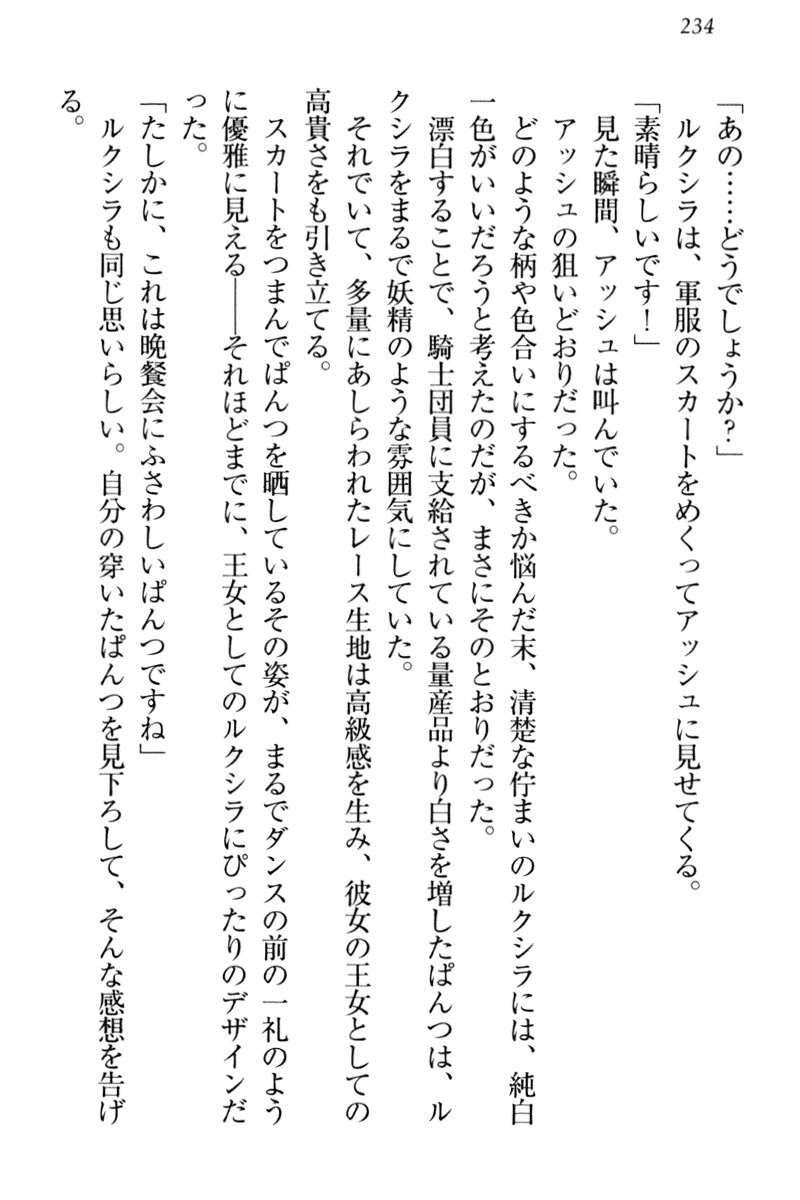 234
「あの……どうでしょうか？」
ルクシラは、軍服のスカートをめくってアッシュに見せてくる。
「素晴らしいです！」
見た瞬間、アッシュは叫んでいた。
アッシュの狙いどおりだった。
どのような柄や色合いにするべきか悩んだ末、清楚な佇まいのルクシラには、純白
一色がいいだろうと考えたのだが、まさにそのとおりだった。
漂白することで、騎士団員に支給されている量産品より白さを増したぱんつは、ル
クシラをまるで妖精のような雰囲気にしていた。
それでいて、多量にあしらわれたレース生地は高級感を生み、彼女の王女としての
高貴さをも引き立てる。
スカートをつまんでぱんつを晒しているその姿が、まるでダンスの前の一礼のよう
に優雅に見える――それほどまでに、王女としてのルクシラにぴったりのデザインだ
った。
「たしかに、これは晩餐会にふさわしいぱんつですね」
ルクシラも同じ思いらしい。自分の穿いたぱんつを見下ろして、そんな感想を告げ
る。